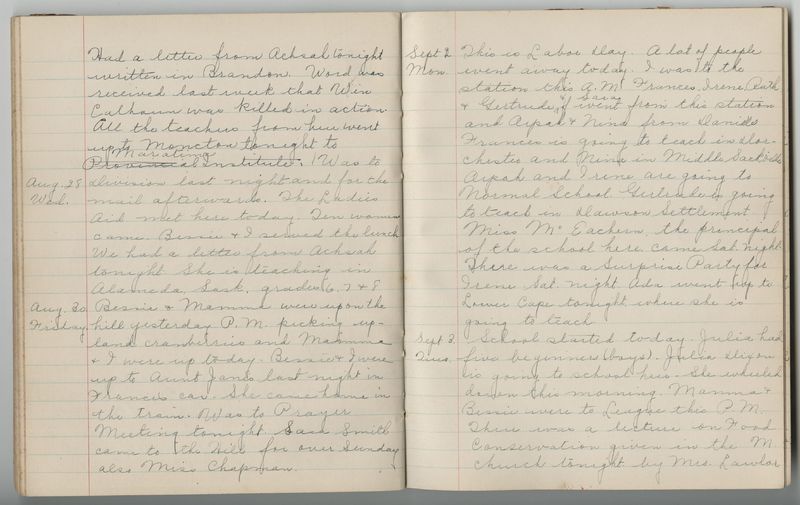 Had a letter from Achsah tonight
written in Brandon. Word was
received last week that Win
Calhoun was killed in action.
All the teachers from here went
up to Moncton tonight to
Maratime
Provincial Institute. I Was to
Aug. 28 division last night and for the
Wed. mail afterwards. The Ladies
Aid met here today. Ten women
came. Bessie & I served the lunch
We had a letter from Achsah
tonight She is teaching in
Alameda, Sask. grades 6, 7 & 8
Aug. 30 Bessie & Mamma were up on the
Friday hill yesterday P.M. picking up-
land cranberries and Mamma
& I were up to-day. Bessie & I were
up to Aunt Janes last night in
Frances car. She came home in
the train. Was to Prayer
Meeting tonight. Sara Smith
came to the Hill for over Sunday
also Miss Chapman.
Sept 2 This is Labor Day. A lot of people
Mon. went away today. I was to the
station this A.M. Frances, Irene, Ruth
& Gertrude, went from this station
and Arpah & Nina from Daniels
Frances is going to teach in Dor-
chester and Nina in Middle Sackville
Arpah and Irene are going to
Normal School Gertrude is going
to teach in Dawson Settlement.
Miss McEachern, the principal
of the school here came Sat. night
There was a Surprise Party for
Irene Sat. night Ada went up to
Lower Cape tonight where she is
going to teach
Sept 3. School started today. Julia had
Tues. five beginners (boys). Julia Dixon
is going to school here. She wheeled
down this morning. Mamma &
Bessie were to League this P.M.
There was a lecture on Food
Conservation given in the M.
church tonight by Mrs. Lawlor